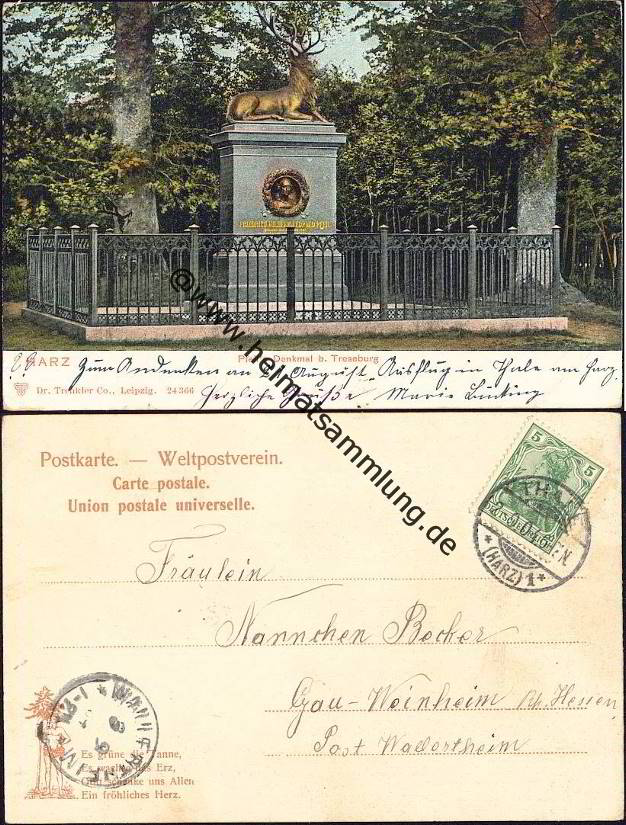 HARZ Denkmal b. Treseburg
Zum Andenken an August Ausflug in Thale am Harz.
Dr. Trenkler Co., Leipzig. 24366 Herzliche Grüße Marie
@www.heimatsammlung.de
Postkarte. — Weltpostverein.
Carte postale.
Union postale universelle.
5 5
THALE
(HARZ) 1
Fräulein
Nannchen Becker
Gau-Weinheim Rh. Hessen
Post Wallertheim
WALLERTHEIM
Es grüne die Tanne,
Es wachse das Erz,
Gott schenke uns Allen
Ein fröhliches Herz.